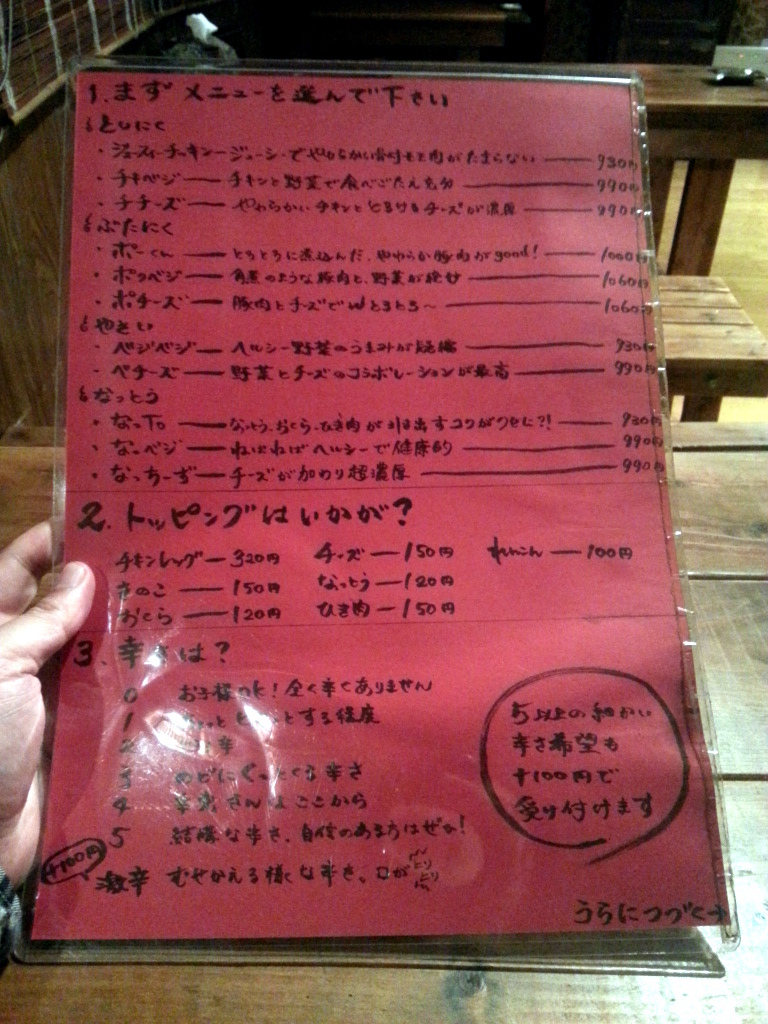 1. まず メニューを選んで下さい
とりにく
・ジューシーチーキン—ジューシーでやわらかい骨付モモ肉がたまらない — 930円
・チキベジ — チキンと野菜で食べごたえ充分 — 990円
・チチーズ — やわらかいチキンととろけるチーズが濃厚 — 990円
ぶたにく
・ポーくん — とろとろに煮込んだ、やわらか豚肉がgood! — 1000円
・ポクベジ — 角煮のような豚肉と、野菜が絶妙 — 1060円
・ポチーズ — 豚肉とチーズでWとろとろ〜 — 1060円
やさい
・ベジベジ — ヘルシー野菜のうまみが凝縮 — 930円
・ベチーズ — 野菜とチーズのコラボレーションが最高 — 990円
なっとう
・なっTo — なっとう、おくら、ひき肉が引き出すコクがクセに?! — 930円
・なっベジ — ねばねばヘルシーで健康的 — 990円
・なっちーず — チーズが加わり超濃厚 — 990円
2. トッピングはいかが?
チキンレッグ — 320円 チーズ — 150円 れんこん — 100円
きのこ — 150円 なっとう — 120円
おくら — 120円 ひき肉 — 150円
3. 辛さは?
0 お子様OK! 全く辛くありません
1 ちょっとピリッとする程度
2 辛
3 のどにぐっとくる辛さ
4 辛党さんはここから
5 結構な辛さ、自信のある方はぜひ!
+100円 激辛 むせかえる様な辛さ、口がヒリヒリ
5以上の細かい
辛さ希望も
+100円で
受け付けます
うらにつづく→